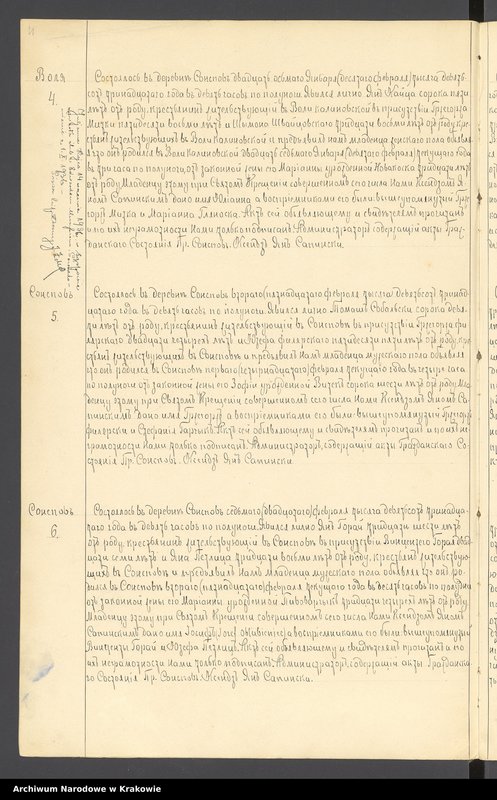 Воля
4.
Состоялось въ деревнѣ Сонсновъ двадцать осьмаго Января (десятаго февраля) тысяча девять-
сотъ тринадцатаго года въ девять часовъ по полуночи. Явился лично Янъ Кайца сорока пяти
лѣтъ отъ роду, крестьянинъ жительствующій въ Воли калиновской въ присутствіи Григорія
Мизки пятидесяти восьми лѣтъ и Шимона Швайцовскаго тридцати восьми лѣтъ отъ роду, кре-
стьянъ жительствующихъ въ Воли Калиновской и предъявилъ намъ младенца женскаго пола объявляя
что онъ родился въ Воли калиновской двадцать седьмаго Января (девятаго февраля) текущаго года
въ три часа по полуночи, отъ законной жены его Маріанны урожденной тридцати лѣтъ
отъ роду. Младенцу этому при Святомъ Крещеніи совершенномъ сего числа Нами Ксендзомъ Я-
номъ Сапинскимъ дано имя Юліанна а воспріемниками его были вышеупомянутый Григ-
орій Мизка и Маріанна. Актъ сей объявляющему и свидѣтелямъ прочитанъ
по ихъ неграмотности Нами только подписанъ. Администраторъ содержащій акты Граж-
данскаго Состоянія Пр. Сонсновъ. Ксендзъ Янъ Сапински.
Сонсновъ
5.
Состоялось въ деревнѣ Сонсновъ втораго (пятнадцатаго) февраля тысяча девятьсотъ тринад-
цатаго года въ девять часовъ по полуночи. Явился лично Томашъ Собальски сорока девя-
ти лѣтъ отъ роду, крестьянинъ жительствующій въ Сонсновѣ въ присутствіи Григорія Фи-
лярскаго двадцати четырехъ лѣтъ и Юзефа Филярскаго пятидесяти пяти лѣтъ отъ роду, кре-
стьянъ жительствующихъ въ Сонсновѣ и предъявилъ намъ младенца мужескаго пола объявляя
что онъ родился въ Сонсновѣ перваго (четырнадцатаго) февраля текущаго года въ четыре часа
по полуночи отъ законной жены его Зофіи урожденной Визекъ сорока шести лѣтъ отъ роду. Мла-
денцу этому при Святомъ Крещеніи совершенномъ сего числа Нами Ксендзомъ Яномъ Са-
пинскимъ дано имя Григорій а воспріемниками его были вышеупомянутый Григорій
Филярски и Стефанія. Актъ сей объявляющему и свидѣтелямъ прочитанъ и по ихъ не-
грамотности Нами только подписанъ. Администраторъ, содержащій акты Гражданскаго Со-
стоянія Пр. Сонсновъ. Ксендзъ Янъ Сапински.
Сонсновъ
6.
Состоялось въ деревнѣ Сонсновъ седьмаго (двадцатаго) февраля тысяча девятьсотъ тринадца-
таго года въ девять часовъ по полуночи. Явился лично Янъ Горай тридцати шести лѣтъ
отъ роду, крестьянинъ жительствующій въ Сонсновѣ въ присутствіи Винцентія Горая двад-
цати семи лѣтъ и Яна Петлица тридцати восьми лѣтъ отъ роду, крестьянъ жительствую-
щихъ въ Сонсновѣ и предъявилъ намъ младенца мужескаго пола объявляя что онъ ро-
дился въ Сонсновѣ втораго (пятнадцатаго) февраля текущаго года въ десять часовъ по полуночи
отъ законной жены его Маріанны урожденной тридцати четырехъ лѣтъ отъ роду.
Младенцу этому при Святомъ Крещеніи совершенномъ сего числа Нами Ксендзомъ Яномъ
Сапинскимъ дано имя а воспріемниками его были вышеупомянутый
Винцентій Горай и Юзефа Петлицъ. Актъ сей объявляющему и свидѣтелямъ прочитанъ и по
ихъ неграмотности Нами только подписанъ. Администраторъ содержащій акты Гражданска-
го Состоянія Пр. Сонсновъ. Ксендзъ Янъ Сапински.
Archiwum Narodowe w Krakowie